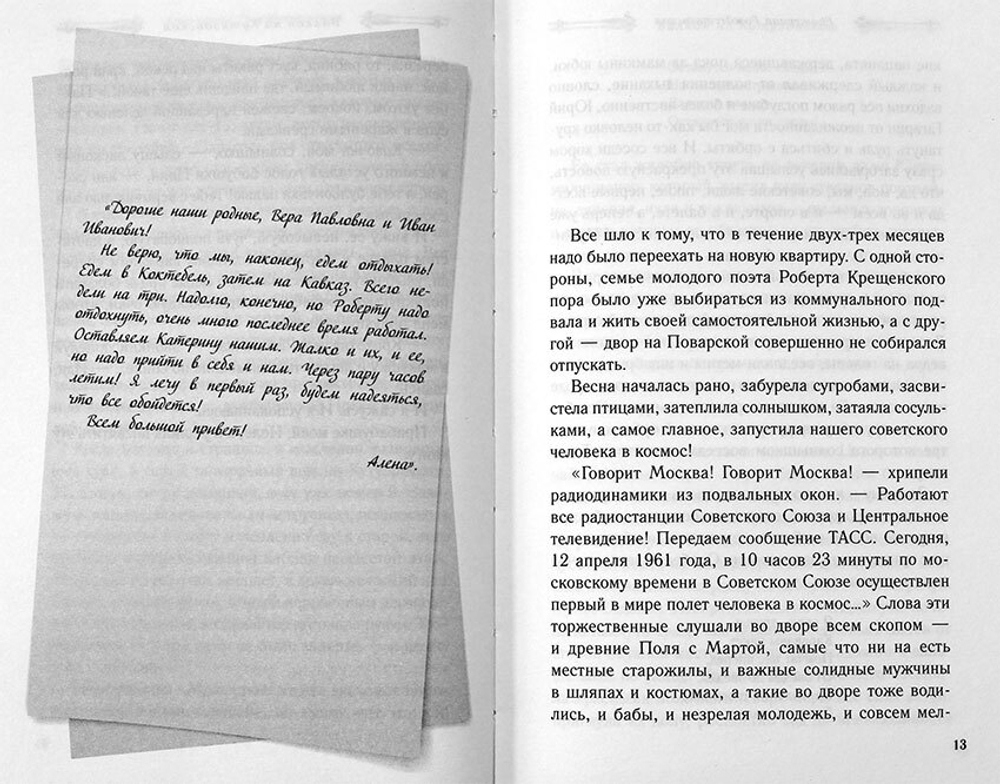 «Дорогие наши родные, Вера Павловна и Иван
Иванович!
Не верю, что мы, наконец, едем отдыхать!
Едем в Коктебель, затем на Кавказ. Всего не-
дели на три. Надолго, конечно, но Роберту надо
отдохнуть, очень много последнее время работал.
Оставляем Катерину нашим. Жалко и их, и ее,
но надо прийти в себя и нам. Через пару часов
летим! Я лечу в первый раз, будем надеяться,
что все обойдется!
Всем большой привет!
Алена».
Все шло к тому, что в течение двух-трех месяцев
надо было переехать на новую квартиру. С одной сто-
роны, семье молодого поэта Роберта Крещенского
пора было уже выбираться из коммунального под-
вала и жить своей самостоятельной жизнью, а с дру-
гой — двор на Поварской совершенно не собирался
отпускать.
Весна началась рано, забурела сугробами, засви-
стела птицами, затеплила солнышком, затаяла сосуль-
ками, а самое главное, запустила нашего советского
человека в космос!
«Говорит Москва! Говорит Москва! — хрипели
радиодинамики из подвальных окон. — Работают
все радиостанции Советского Союза и Центральное
телевидение! Передаем сообщение ТАСС. Сегодня,
12 апреля 1961 года, в 10 часов 23 минуты по мо-
сковскому времени в Советском Союзе осуществлен
первый в мире полет человека в космос...» Слова эти
торжественные слушали во дворе всем скопом —
и древние Поля с Мартой, самые что ни на есть
местные старожилы, и важные солидные мужчины
в шляпах и костюмах, а такие во дворе тоже води-
лись, и бабы, и незрелая молодежь, и совсем мел-
13